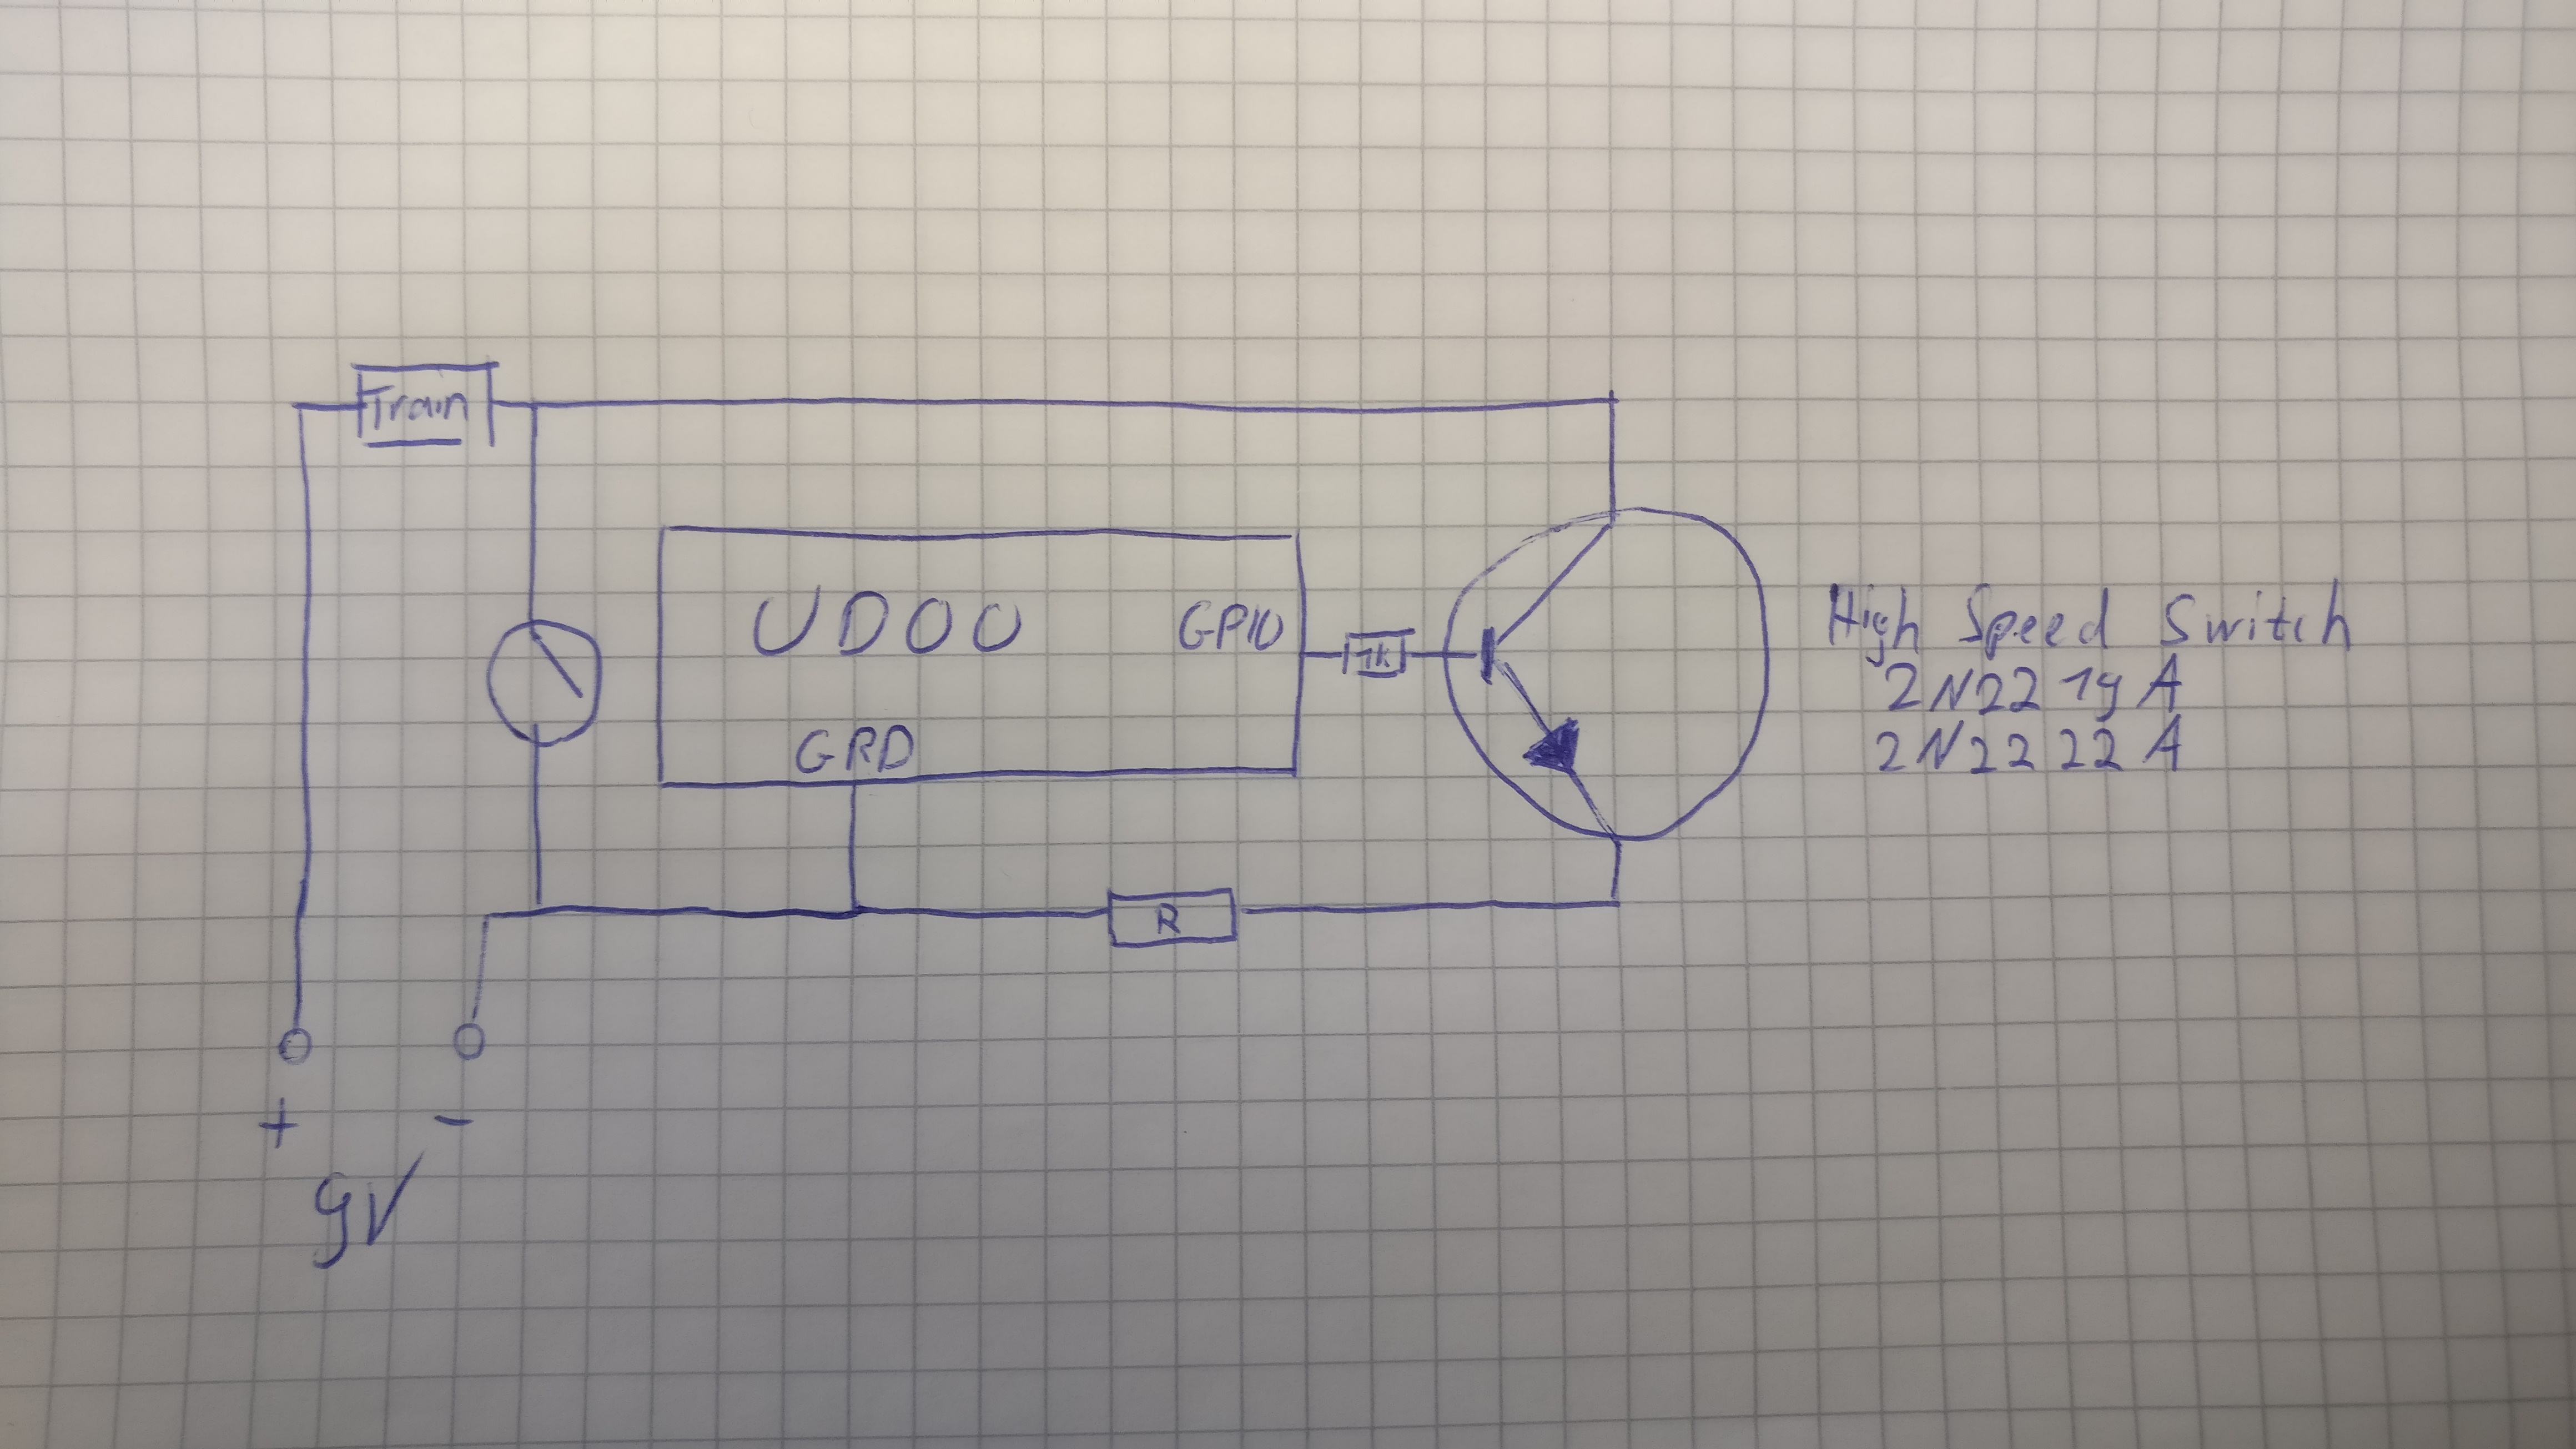 Train
UDOO
GPIO
1K
GRD
R
High Speed Switch
2N2219A
2N2222A
+
-
9V